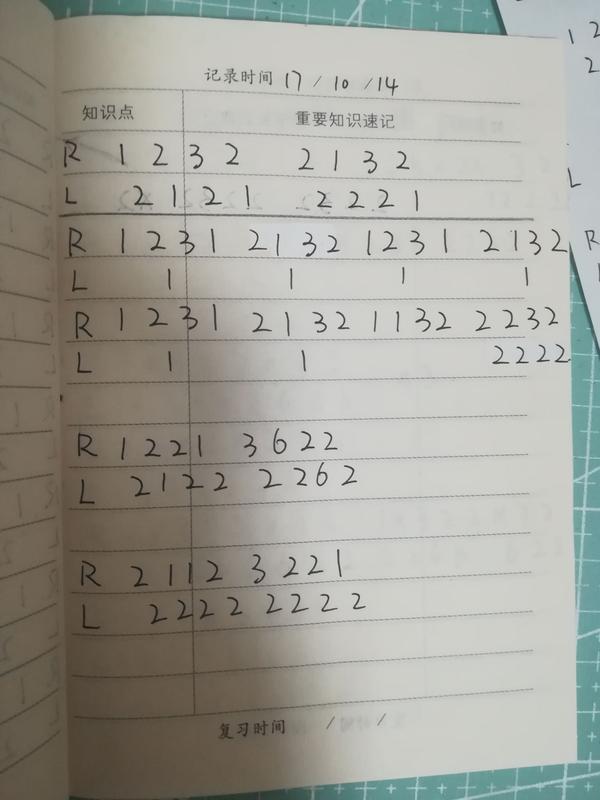 记录时间 17 / 10 / 14
知识点 重要知识速记
R 1 2 3 2 2 1 3 2
L 2 1 2 1 2 2 2 1
R 1 2 3 1 2 1 3 2 1 2 3 1 2 1 3 2
L 1 1 1 1
R 1 2 3 1 2 1 3 2 1 1 3 2 2 2 3 2
L 1 1 2 2 2 2
R 1 2 2 1 3 6 2 2
L 2 1 2 2 2 2 6 2
R 2 1 1 2 3 2 2 1
L 2 2 2 2 2 2 2 2
复习时间 / /
1 2
2
L
R